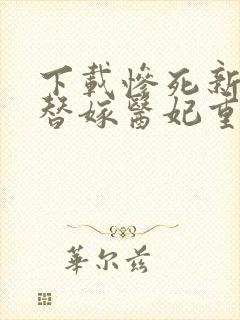 下載慘死新
替嫁醫妃重
華尔兹